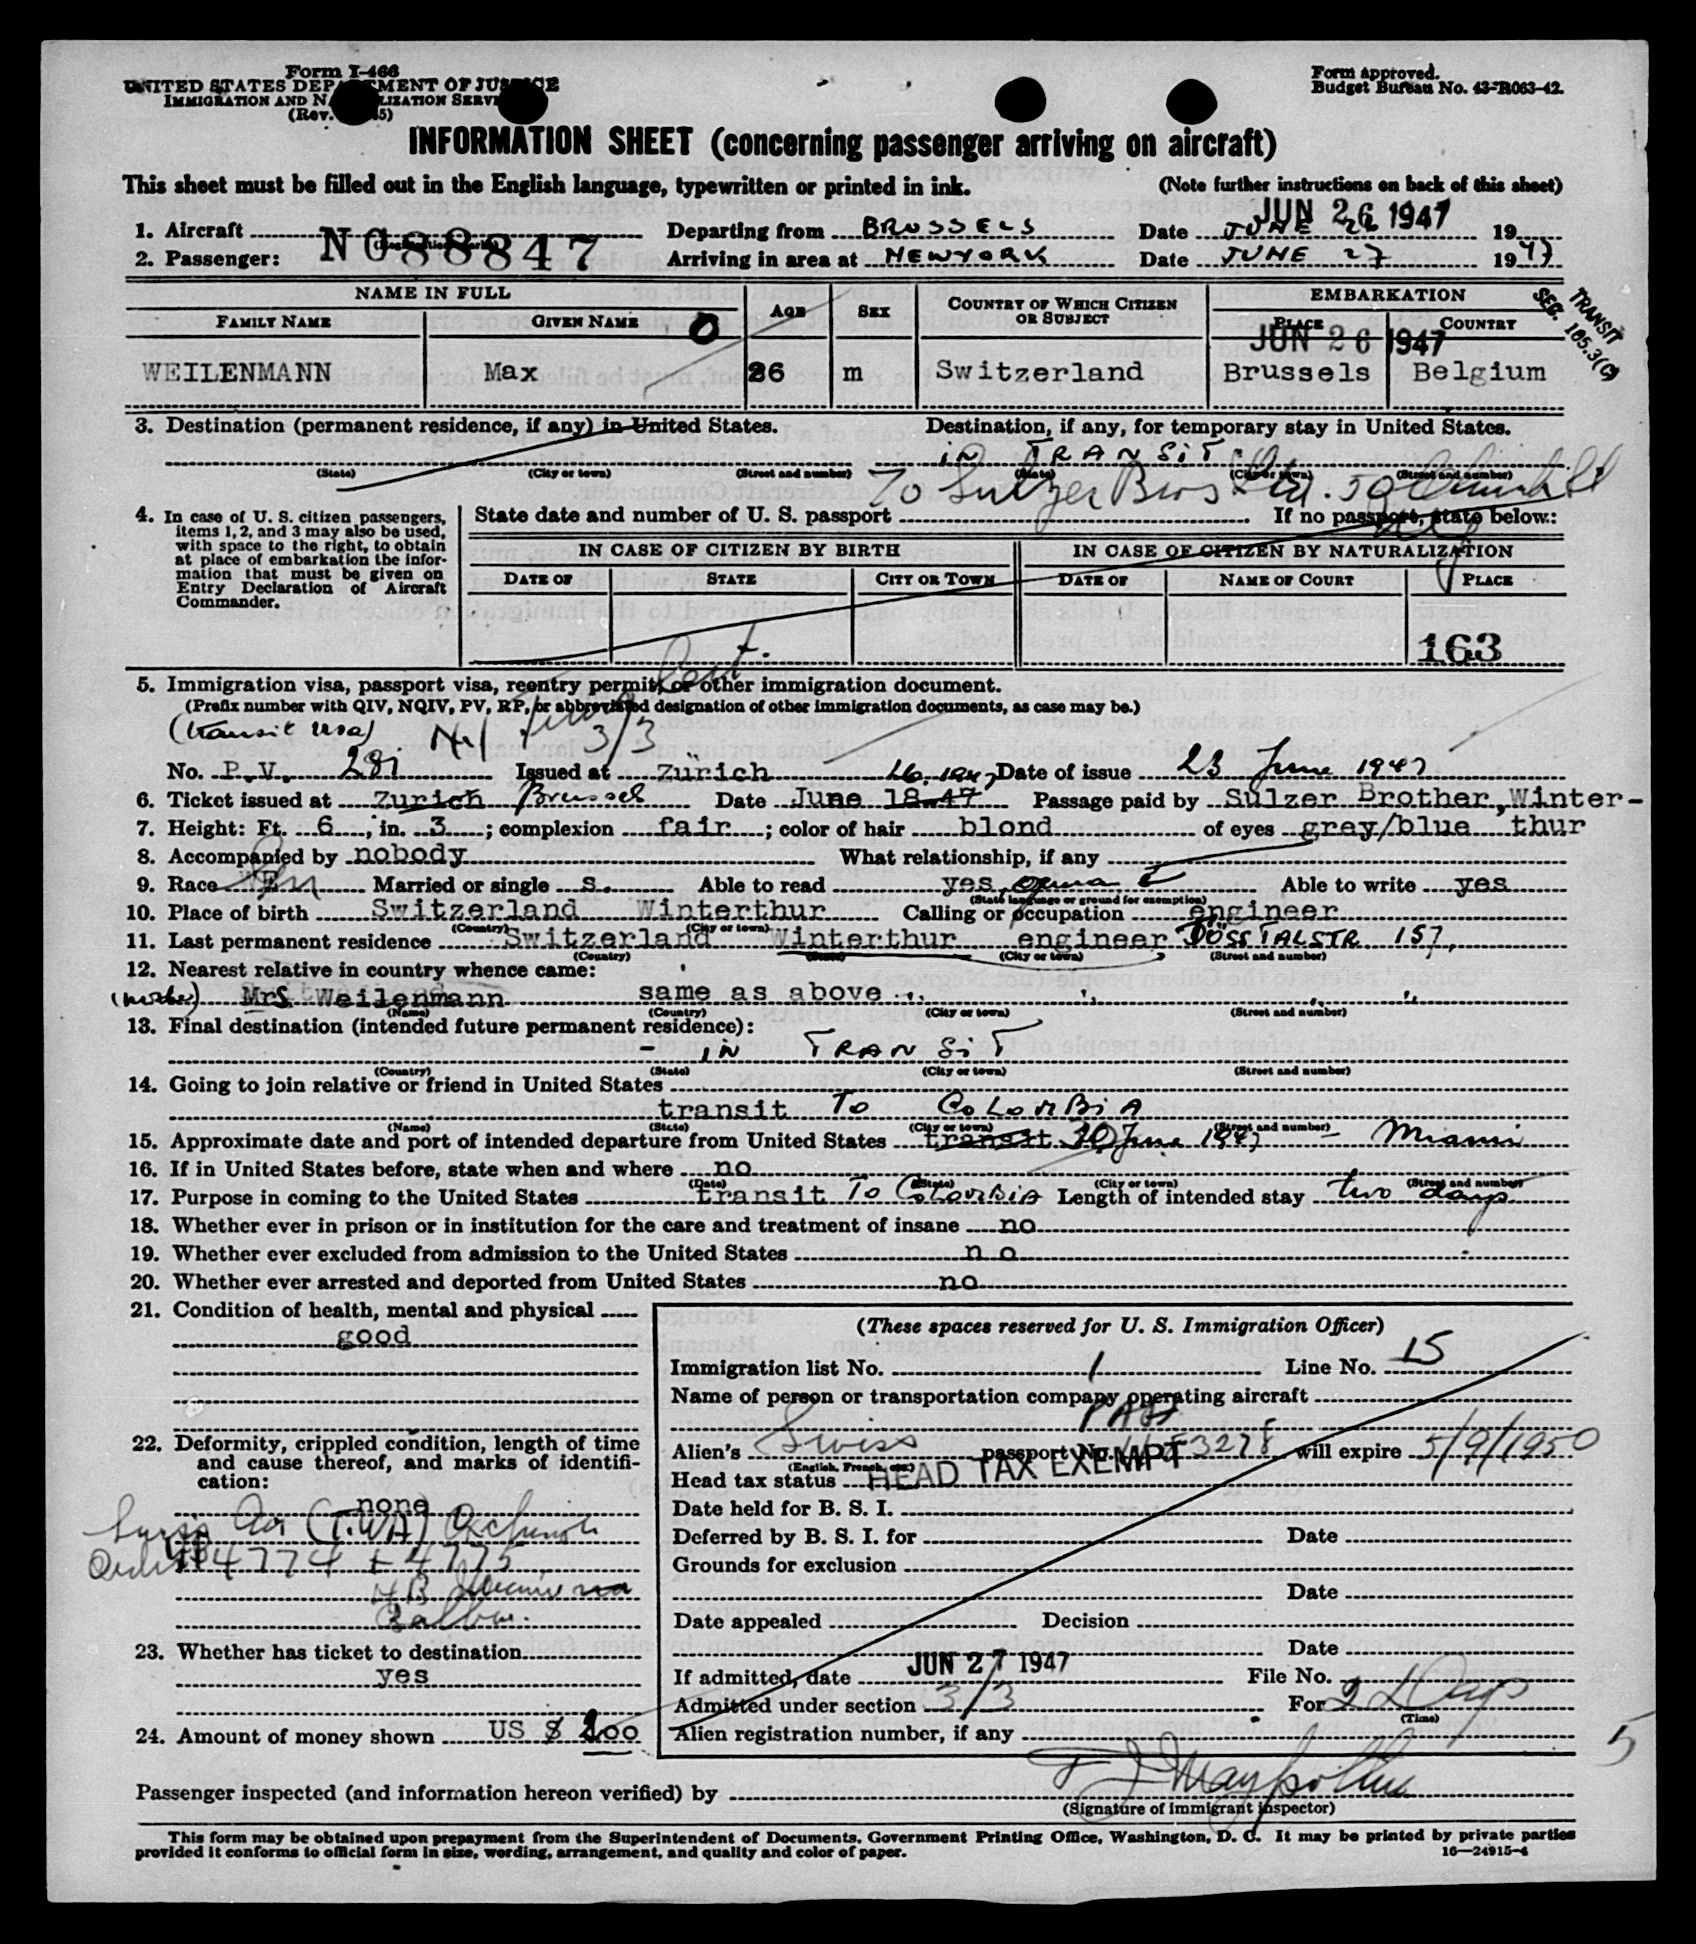 Form I-466
UNITED STATES DEPARTMENT OF JUSTICE
IMMIGRATION AND NATURALIZATION SERVICE
(Rev.
Form approved.
Budget Bureau No. 43-R063-42.
INFORMATION SHEET (concerning passenger arriving on aircraft)
This sheet must be filled out in the English language, typewritten or printed in ink.
(Note further instructions on back of this sheet)
JUN 26 1947
1. Aircraft NC88847 Departing from BRUSSELS Date JUNE 26 19
2. Passenger: Arriving in area at NEWYORK Date JUNE 27 1947
NAME IN FULL
AGE
SEX
COUNTRY OF WHICH CITIZEN OR SUBJECT
EMBARKATION
FAMILY NAME
GIVEN NAME
PLACE
COUNTRY
TRANSIT
SEC. 165.3(c)
JUN 26 1947
WEILENMANN Max 26 m Switzerland Brussels Belgium
3. Destination (permanent residence, if any) in United States.
Destination, if any, for temporary stay in United States.
IN TRANSIT.
(State) (City or town) (Street and number) (State) (City or town) (Street and number)
To Sulzer Bros Ltd. 50 Church St
4. In case of U. S. citizen passengers, items 1, 2, and 3 may also be used, with space to the right, to obtain at place of embarkation the information that must be given on Entry Declaration of Aircraft Commander.
State date and number of U. S. passport If no passport, state below:
IN CASE OF CITIZEN BY BIRTH
IN CASE OF CITIZEN BY NATURALIZATION
DATE OF STATE CITY OR TOWN DATE OF NAME OF COURT PLACE
163
5. Immigration visa, passport visa, reentry permit, or other immigration document.
(Prefix number with QIV, NQIV, PV, RP, or abbreviated designation of other immigration documents, as case may be.)
(transit visa) 3/3
No. P.V. 281 Issued at Zürich Date of issue 23 June 1947
6. Ticket issued at Zurich Brussel Date June 18.47 Passage paid by Sulzer Brother, Winter-
7. Height: Ft. 6, in. 3; complexion fair; color of hair blond of eyes grey/blue thur
8. Accompanied by nobody What relationship, if any
9. Race Married or single s. Able to read yes, Able to write yes
(State language or ground for exemption)
10. Place of birth Switzerland Winterthur Calling or occupation engineer
(Country) (City or town)
11. Last permanent residence Switzerland Winterthur engineer TÖSSTALSTR 157,
(Country) (State) (City or town) (Street and number)
12. Nearest relative in country whence came:
(mother) Mrs. Weilenmann same as above
(Name) (Country) (City or town) (Street and number)
13. Final destination (intended future permanent residence):
- IN TRANSIT
(Country) (State) (City or town) (Street and number)
14. Going to join relative or friend in United States
transit TO COLOMBIA
(Name) (State) (City or town) (Street and number)
15. Approximate date and port of intended departure from United States transit 30 June 1947 - Miami
16. If in United States before, state when and where no
(Date) (State) (City or town) (Street and number)
17. Purpose in coming to the United States transit TO COLOMBIA Length of intended stay two days
18. Whether ever in prison or in institution for the care and treatment of insane no
19. Whether ever excluded from admission to the United States no
20. Whether ever arrested and deported from United States no
21. Condition of health, mental and physical
good
22. Deformity, crippled condition, length of time and cause thereof, and marks of identification:
none
Swiss Air (TWA) Exchange
Order 4774 + 4775
23. Whether has ticket to destination
yes
24. Amount of money shown US $ 200
(These spaces reserved for U. S. Immigration Officer)
Immigration list No. 1 Line No. 15
Name of person or transportation company operating aircraft
PAA
Alien's Swiss passport No. will expire 5/9/1950
(English, French, etc.)
Head tax status HEAD TAX EXEMPT
Date held for B. S. I.
Deferred by B. S. I. for Date
Grounds for exclusion
Date
Date appealed Decision
Date
If admitted, date JUN 27 1947 File No.
Admitted under section 3/3 For 2 Days
(Time)
Alien registration number, if any
5
Passenger inspected (and information hereon verified) by
(Signature of immigrant inspector)
This form may be obtained upon prepayment from the Superintendent of Documents, Government Printing Office, Washington, D. C. It may be printed by private parties
provided it conforms to official form in size, wording, arrangement, and quality and color of paper.
16—24915-4